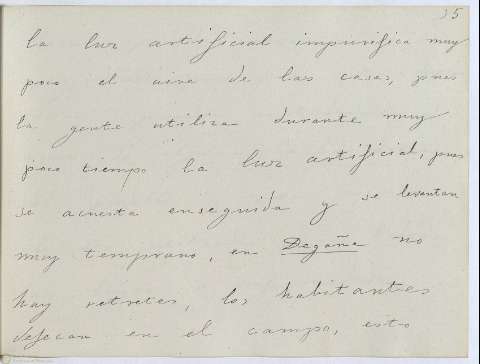 35
la luz artificial impurifica muy
poco el aire de las casas, pues
la gente utiliza durante muy
poco tiempo la luz artificial, pues
se acuesta enseguida y se levantan
muy temprano, en Degaña no
hay retretes, los habitantes
defecan en el campo, esto